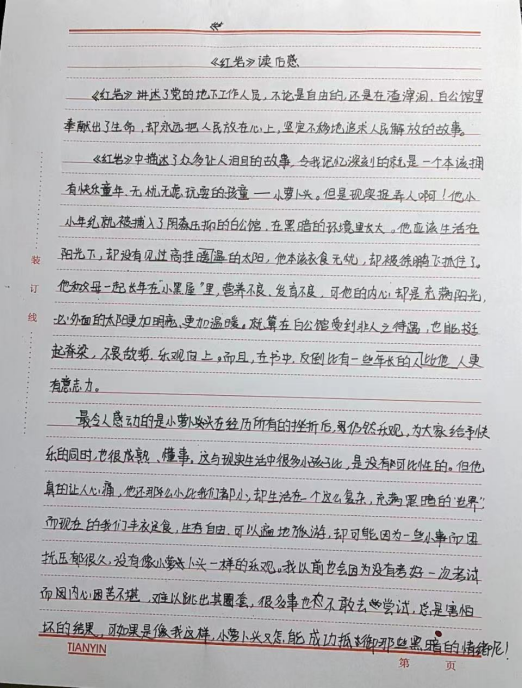 《红岩》读后感
《红岩》讲述了党的地下工作人员,不论是自由的,还是在渣滓洞、白公馆里
奉献出了生命,却永远把人民放在心上,坚定不移地追求人民解放的故事。
《红岩》中描述了众多让人泪目的故事,令我记忆深刻的就是一个本该拥
有快乐童年、无忧无虑玩耍的孩童——小萝卜头。但是现实捉弄人啊!他小
小年纪就被捕入了阴森压抑的白公馆,在黑暗的环境里长大。他应该生活在
阳光下,却没有见过高挂温的太阳,他本该衣食无忧,却被徐鹏飞抓住了。
他和父母一起长年在“小黑屋”里,营养不良、发育不良,可他的内心却是充满阳光,
比外面的太阳更加明亮、更加温暖。就算在白公馆受到非人之待遇,也能挺
起脊梁,不畏敌势,乐观向上。而且,在书中,反倒比有一些年长的人比他人更
有意志力。
最令人感动的是小萝卜头在经历所有的挫折后,仍然乐观,为大家给予快
乐的同时,也很成熟、懂事。这与现实生活中很多小孩子比,是没有可比性的。但他
真的让人心痛,他还那么小,比我们都小,却生活在一个这么复杂,充满黑暗的“世界”,
而现在的我们丰衣足食,生有自由,可以遍地旅游,却可能因为一些小事而困
扰压郁很久,没有像小萝卜头一样的乐观。我以前也会因为没有考好一次考试
而因内心困苦不堪,难以跳出其圈套,很多事也不敢去尝试,总是害怕
坏的结果,可如果是像我这样,小萝卜头又怎能成功抵御那些黑暗的情绪呢!
装
订
线
TIANYIN
第 页